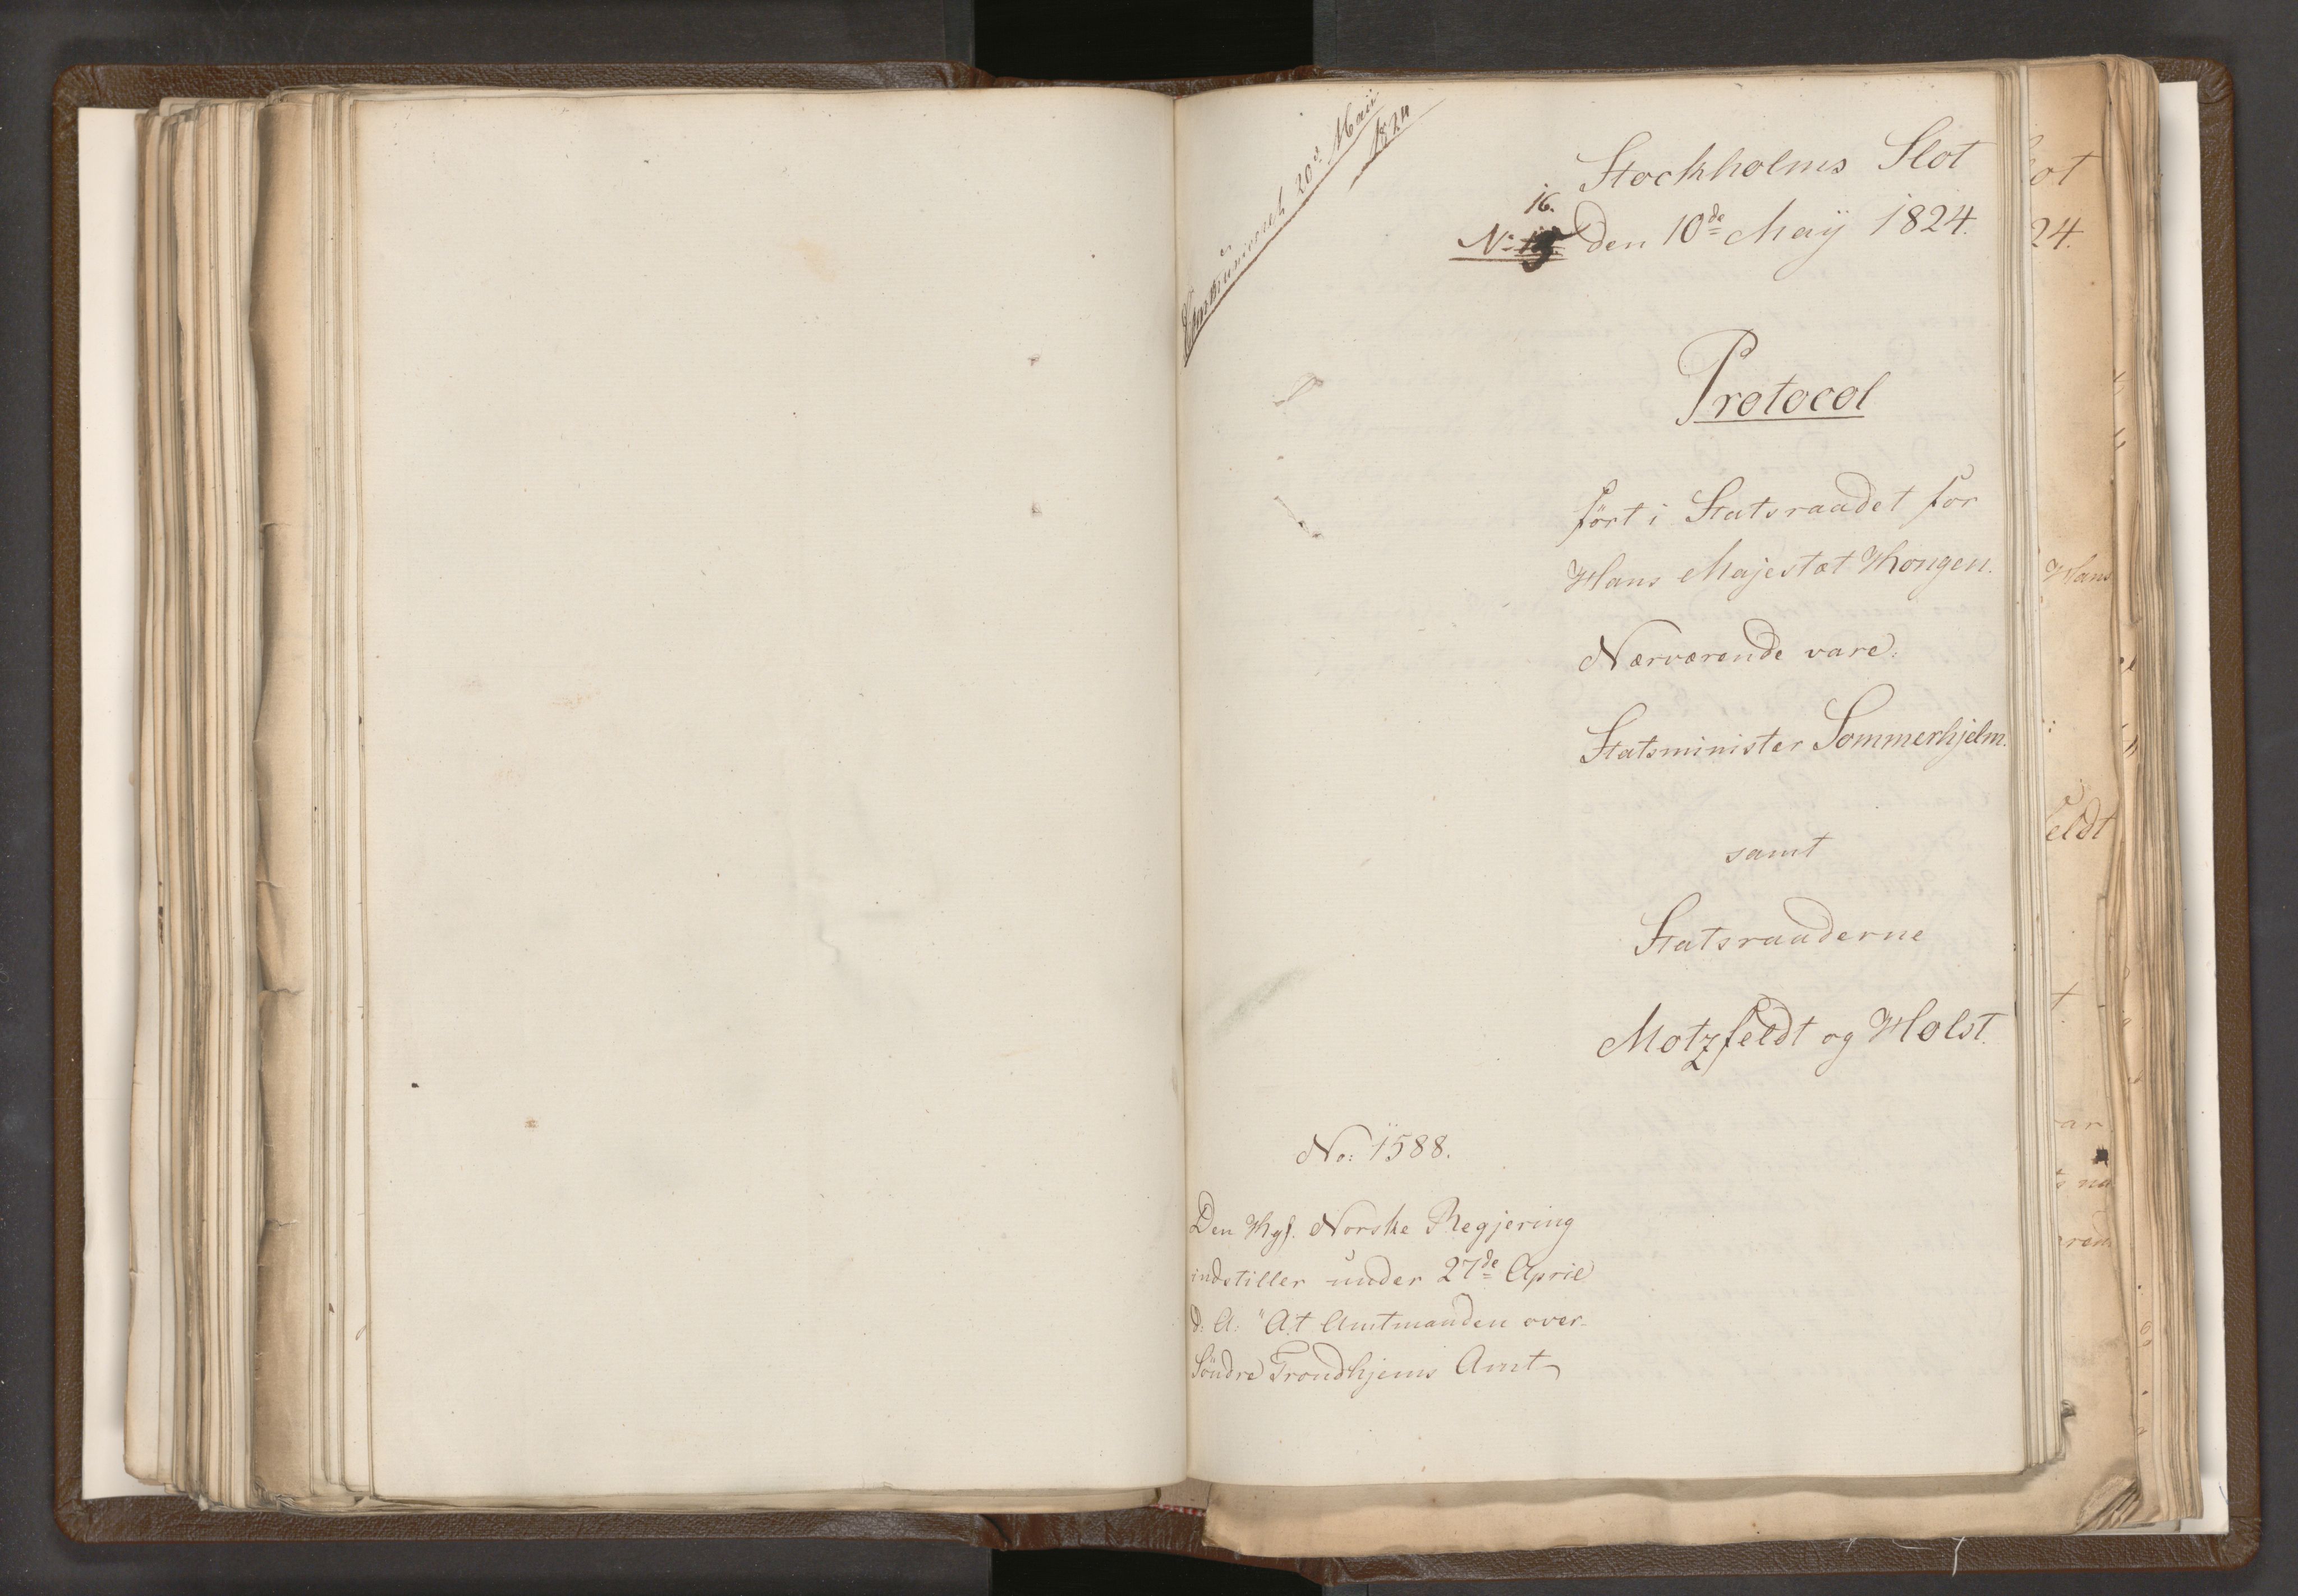 Communiceret 20d Maii
1824
Stockholms Slot
16.
No den 10de Maÿ 1824.
Protocol
fört i Statsraadet for
Hans Majestæt Kongen.
Nærværende vare:
Statsminister Sommerhjelm.
samt
Statsraaderne
Motzfeldt og Holst.
No: 1588.
Den Kgl. Norske Regjering
indstiller under 27de April
d: A: "At Amtmanden over
Söndre Trondhjems Amt
ot
24.
Hans
eldt